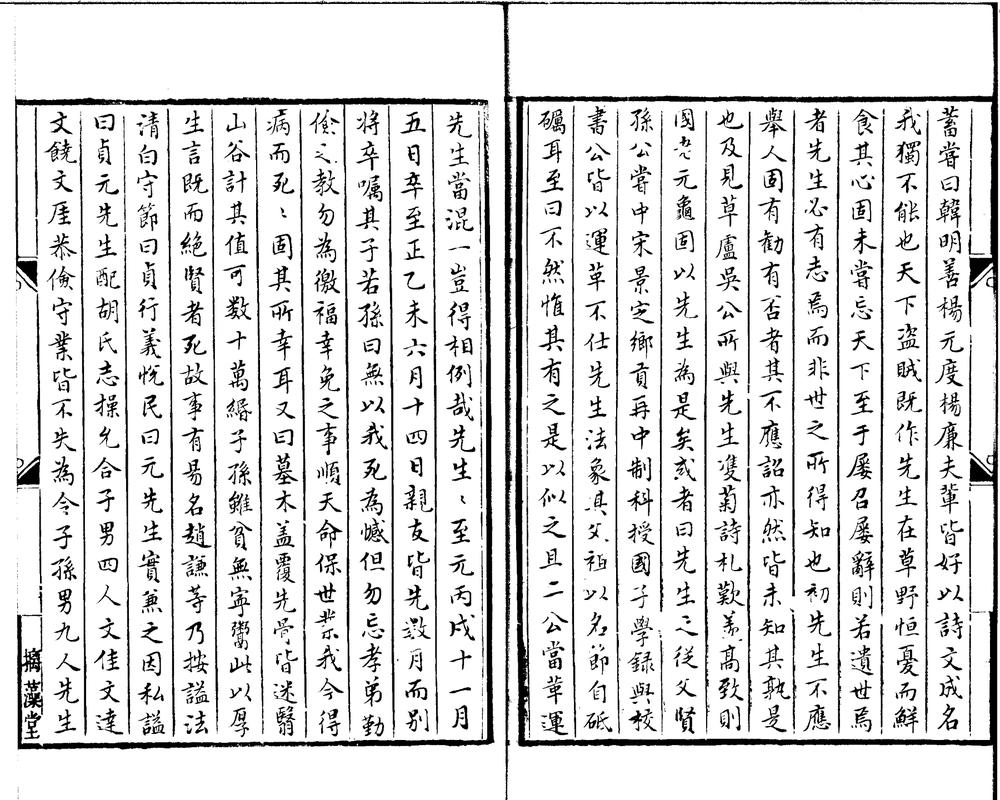 蓄嘗曰韓明善楊元度楊廉夫輩皆好以詩文成名
我獨不能也天下盜賊既作先生在草野恒憂而鮮
食其心固未嘗忘天下至于屢召屢辭則若遺世焉
者先生必有志焉而非世之所得知也初先生不應
舉人固有勸有否者其不應詔亦然皆未知其孰是
也及見草廬吳公所與先生雙菊詩札歎羨髙致則
國老元龜固以先生為是矣或者曰先生之從父賢
孫公嘗中宋景定鄉貢再中制科授國子學録與校
書公皆以運革不仕先生法象其父祖以名節自砥
礪耳至曰不然惟其有之是以似之且二公當革運
先生當混一豈得相例哉先生〻至元丙戌十一月
五日卒至正乙未六月十四日親友皆先數月而别
將卒囑其子若孫曰無以我死為憾但勿忘孝弟勤
儉之教勿為徼福幸免之事順天命保世業我今得
病而死〻固其所幸耳又曰墓木盖覆先骨皆迷翳
山谷計其值可数十萬緡子孫雖貧無寧鬻此以厚
生言既而絕賢者死故事有易名趙謙等乃按謚法
清白守節曰貞行義悅民曰元先生實兼之因私謚
曰貞元先生配胡氏志操允合子男四人文佳文達
文饒文厓恭儉守業皆不失為令子孫男九人先生
摛藻堂